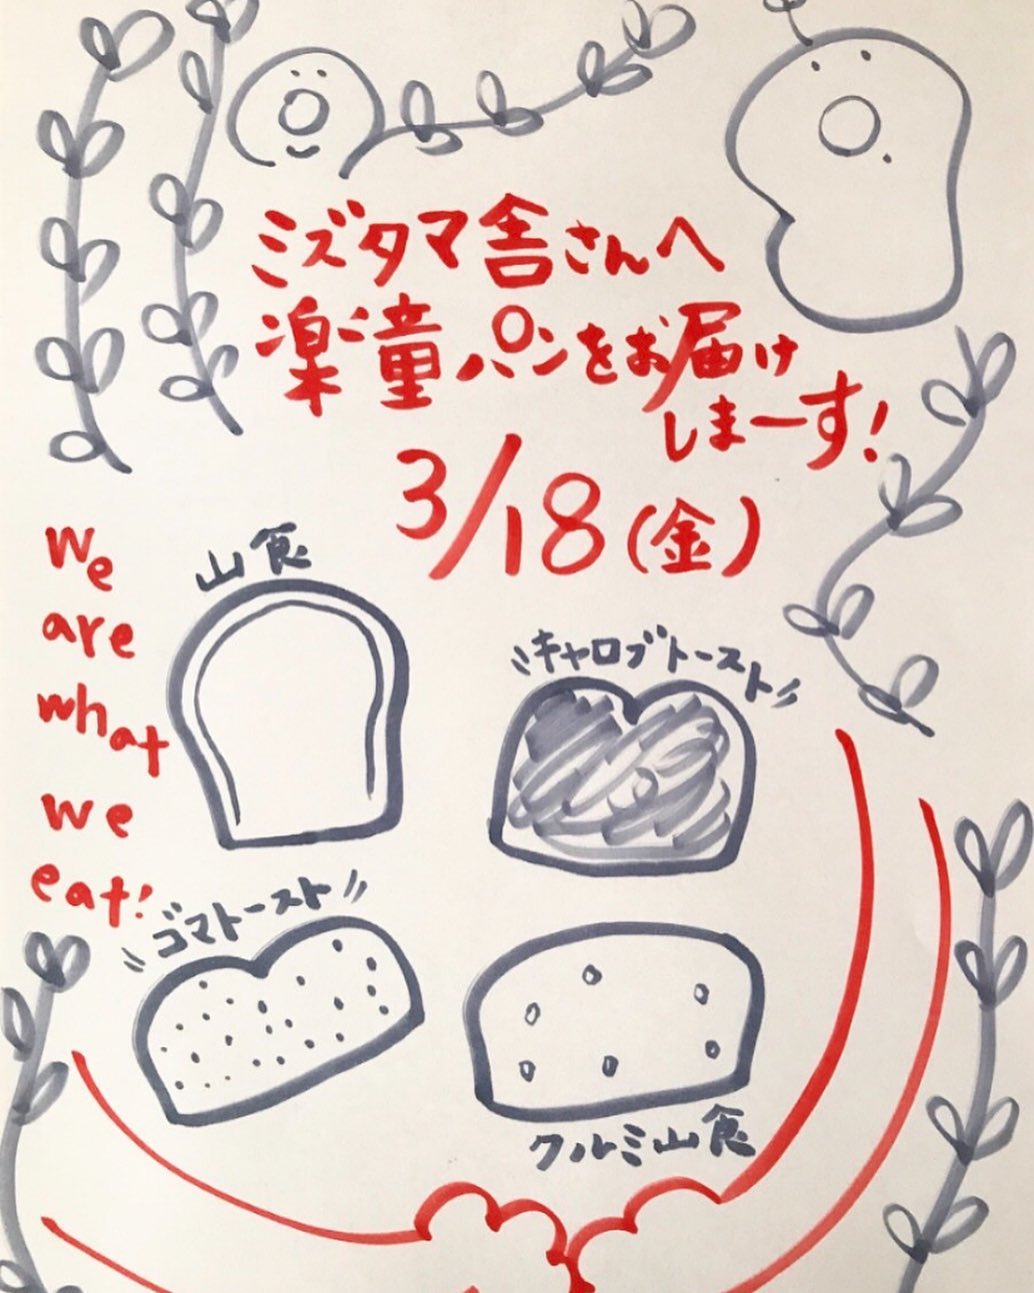 ミズタマ舎さんへ
楽童パンをお届け
しまーす!
3/18(金)
We
are
what
we
eat!
山食
キャロブトースト
ゴマトースト
クルミ山食